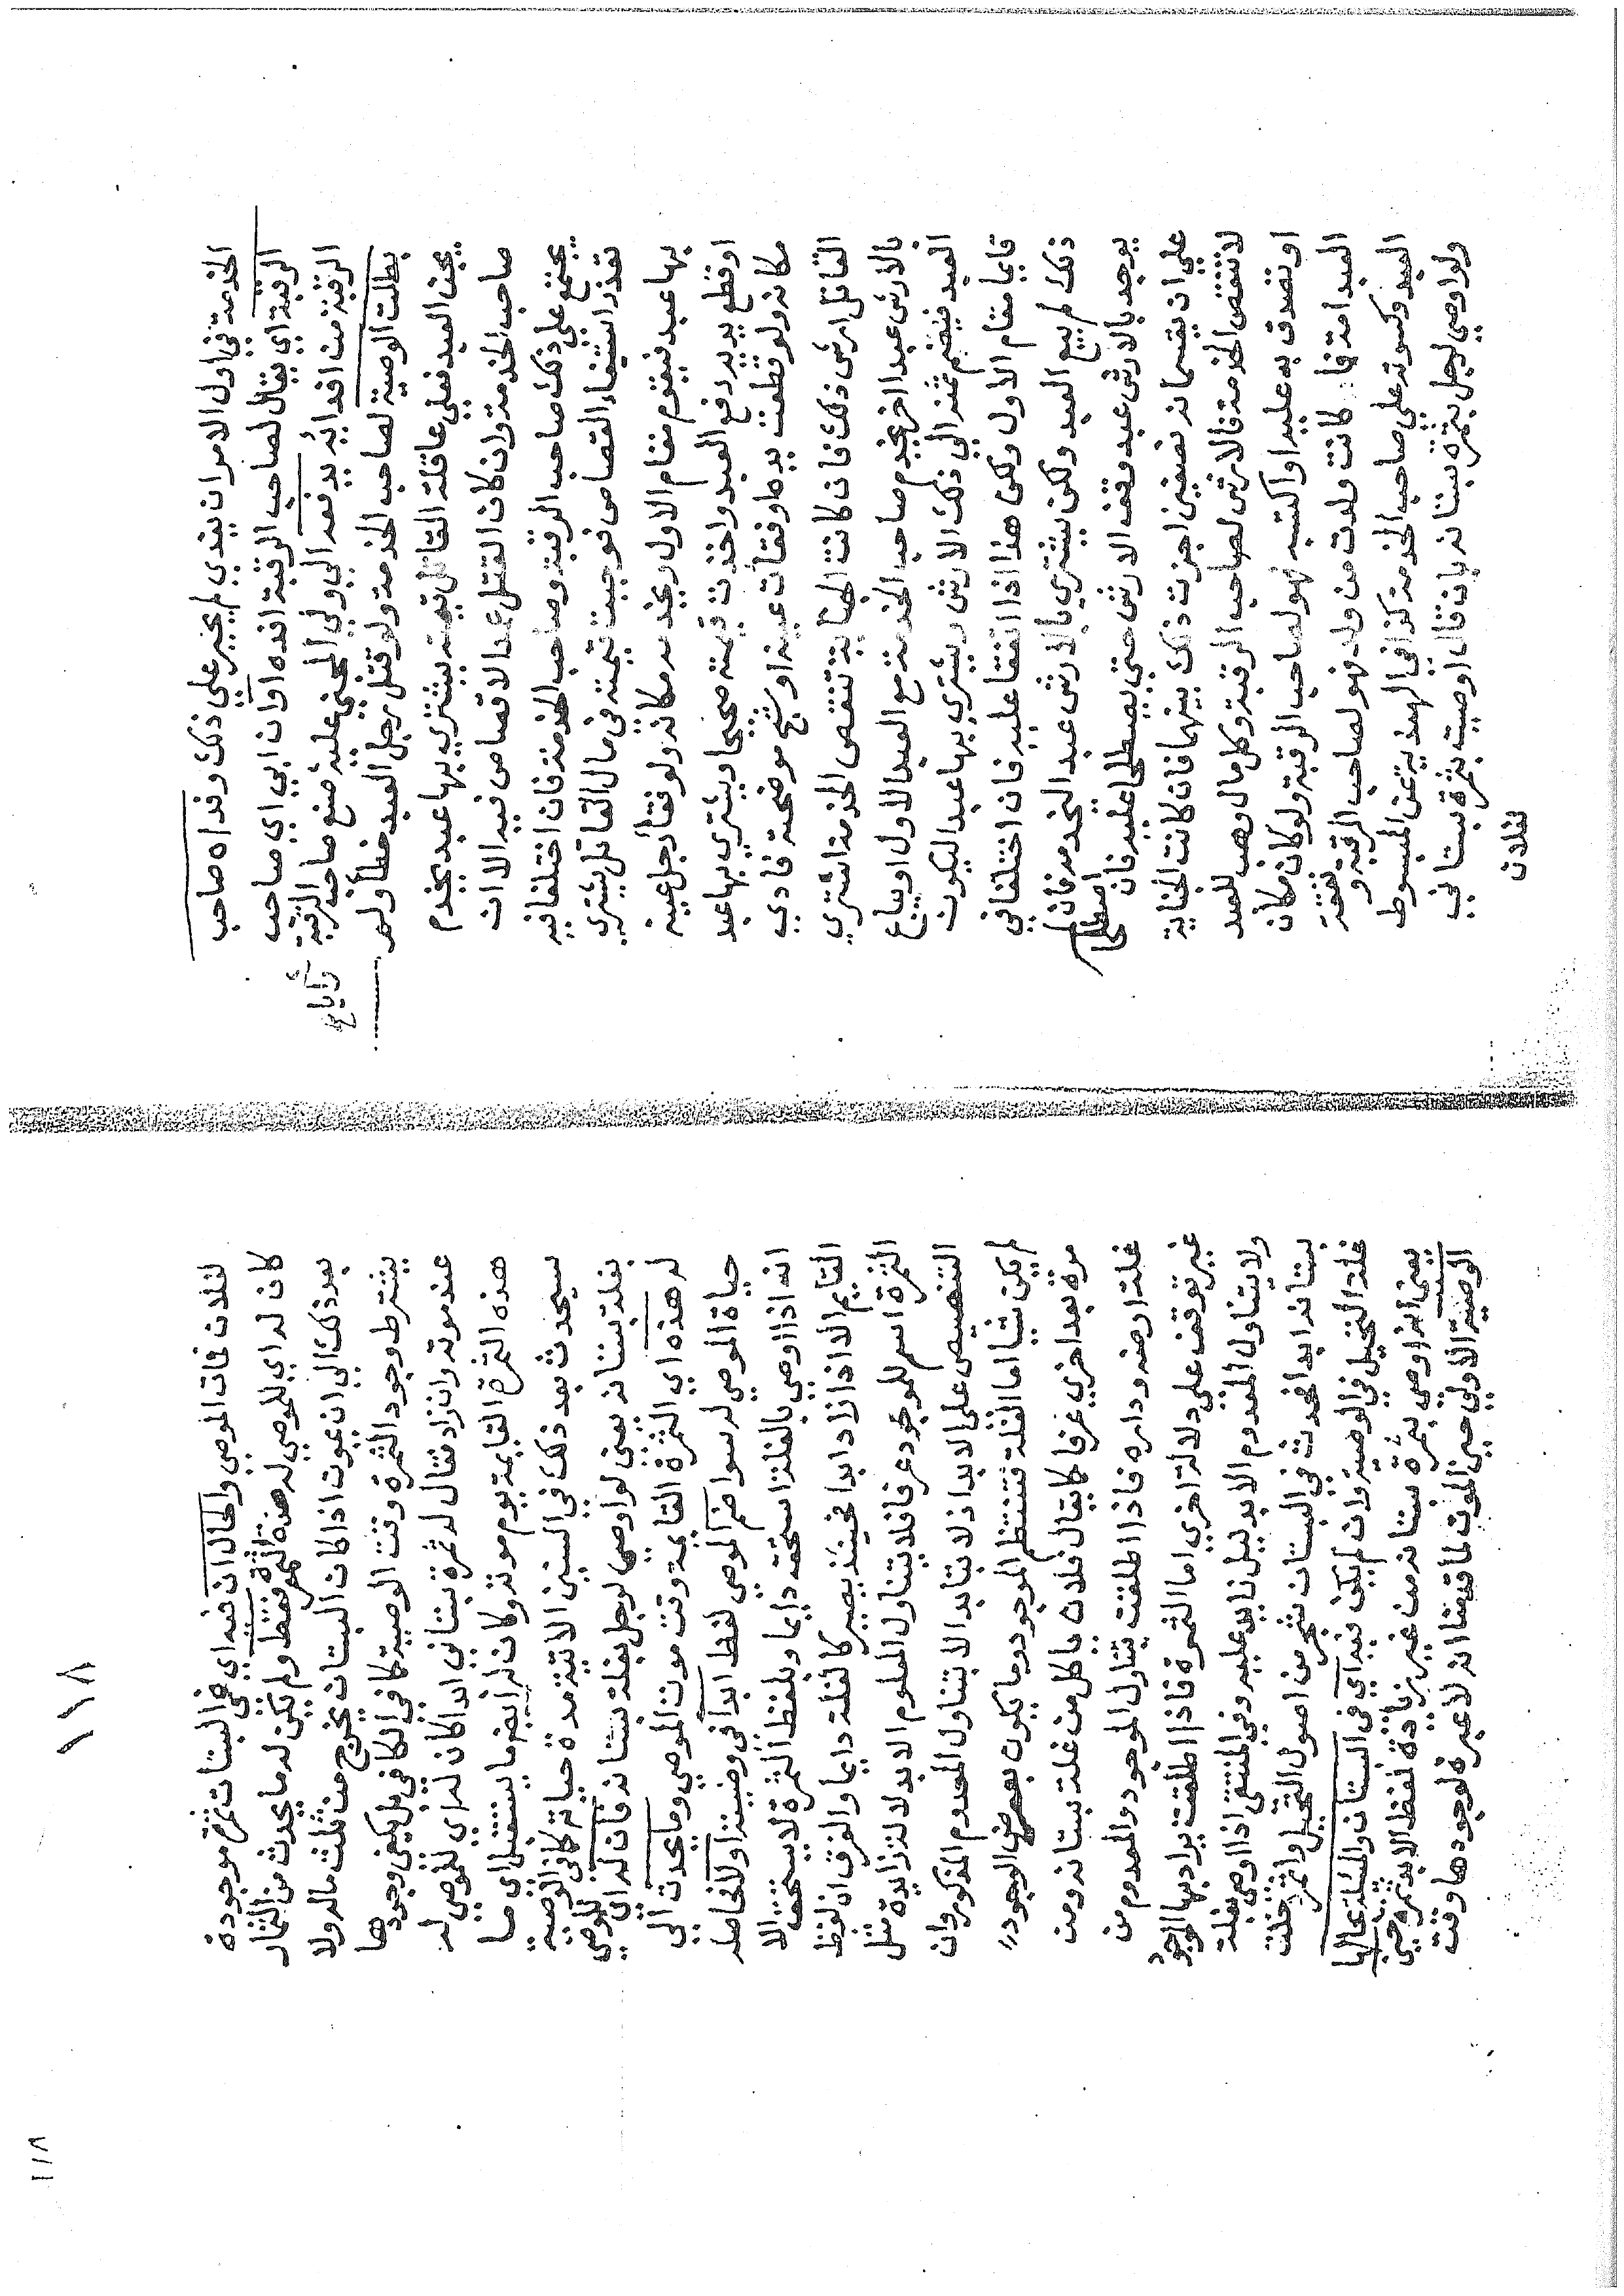 الخدمة في اول الامر ان يفدي لم يجبر علي ذلك وفداه صاحب
الرقبة اي يقال لصاحب الرقبة افده او ان ابي اي صاحب
الرقبة من افدائه يدفعه الي ولي المجني عليه صنع صاحب الرقبة
بطلت الوصية لصاحب الخدمة ولو قتل رجل العبد خطأ ولم
يجن العبد فعلي عاقلة القاتل قيمته يشتري بها عبد يخدم
صاحب الخدمة وان كان القتل عمدا لا قصاص فيه الا ان
يجتمع علي ذلك صاحب الرقبة وصاحب الخدمة فان اختلفا فيه
تعذر استيفاء القصاص فوجبت قيمته في مال القاتل يشتري
بها عبد فيقوم مقام الاول ويخدمه مكانه ولو فقأ رجل عينه
او قطع يديه دفع العبد واخذت قيمته صحيحا ويشتري بها عبد
مكانه ولو قطعت يده او فقأت عينه او شج موضحة فادي
القاتل ارش ذلك فان كانت الجناية تنقص الخدمة اشتري
بالارش عبدا اخر يخدم صاحب الخدمة مع العبد الاول او يباع
العبد فيضم ثمنه الي ذلك الارش ويشتري بها عبد اليكون
قايما مقام الاول ولكن هذا اذا اتفقا عليه فان اختلفا في
ذلك لم يبع العبد ولكن يشتري بالارش عبد التخدمه فان لم
يوجد بالارش عبد وقف الارش حتي يصطلحا عليه فان اصطلحا
علي ان يقسمانه نصفين اجزت ذلك بينهما فان كانت الجناية
لا تنقص الخدمة فالارش لصاحب الرقبة وكل مال وهب للعبد
او تصدق به عليه او اكتسبه فهو لصاحب الرقبة ولو كان مكان
العبد امة فما كانت ولدت من ولد فهو لصاحب الرقبة ونفقة
العبد وكسوته علي صاحب الخدمة كذا في الهندية عن المبسوط
ولو اوصي لرجل بثمرة بستانه بان قال اوصيت بثمرة بستاني
لفلان
١١٨
لفلان فمات الموصي والحال ان فيه اي في البستان ثمرة موجودة
كان له اي للموصي له هذه الثمرة فقط ولم يكن له ما يحدث من الثمار
بعد ذلك الي ان يموت اذا كان البستان يخرج من ثلث ماله ولا
يشترط وجود الثمرة وقت الوصية كما في الكافي بل يكفي وجودها
عند موته وان زاد فقال له ثمرة بستاني ابدا كان له اي للموصي له
هذه الثمرة القايمة يوم موته وكان له ايضا ما يستقبل اي ما
سيحدث بعد ذلك في السنين الاتية مدة حياته كما في الوصية
بغلة بستانه يعني لو اوصي لرجل بغلة بستانه فان له اي للموصي
له هذه اي الثمرة القايمة وقت موت الموصي وما يحدث الي
حياة الموصي له سواء ضم الموصي لفظ ابدا في وصيته اولا فالحاصل
انه اذا اوصي بالغلة استحقه دايما وبلفظ الثمرة لا يستحق الا
القايم الا اذا زاد ابدا فحينئذ يصير كالغلة دايما والفرق ان لفظ
الثمرة اسم للموجود عرفا فلا يتناول المعلوم الا بدلالة زايدة مثل
التنصيص علي الابد اذ لا يتابد الا بتناول المعدوم المذكور وان
لم يكن شيا اما الغلة فتنتظم الموجود وما يكون بعرض الوجود
مرة بعد اخري عرفا كما يقال فلان ياكل من غلة بستانه ومن
غلة ارضه وداره فاذا اطلقت يتناول الموجود والمعدوم من
غير توقف علي دلالة اخري اما الثمرة فاذا اطلقت يراد بها الموجود
ولا يتناول المعدوم الا بدليل زايد عليه وفي المنتقي اذا اوصي بغلة
بستانه ابدا فحدث في البستان شجر من اصول النخيل واثمر دخلت
غلة النخيل في الوصية وان لم يكن فيه اي في البستان والمسئلة بحالها
يعني انه اوصي بثمرة بستانه من غير زيادة لفظ الابد ثمرة حين
الوصية الاولي حين الموت لما قدمنا انه لا عبرة لوجودها وقت
١١٨